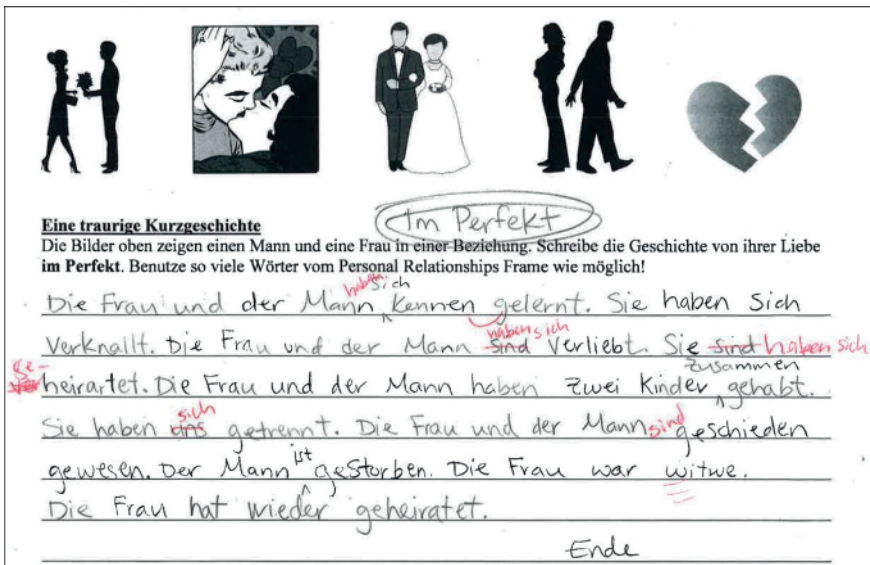 Im Perfekt
Eine traurige Kurzgeschichte
Die Bilder oben zeigen einen Mann und eine Frau in einer Beziehung. Schreibe die Geschichte von ihrer Liebe
im Perfekt. Benutze so viele Wörter vom Personal Relationships Frame wie möglich!
haben sich
Die Frau und der Mann kennen gelernt. Sie haben sich
haben sich
verknallt. Die Frau und der Mann sind verliebt. Sie sind haben sich
ge- zusammen
heirartet. Die Frau und der Mann haben zwei Kinder gehabt.
sich
Sie haben uns getrennt. Die Frau und der Mann sind geschieden
ist
gewesen. Der Mann gestorben. Die Frau war witwe.
Die Frau hat wieder geheiratet.
Ende